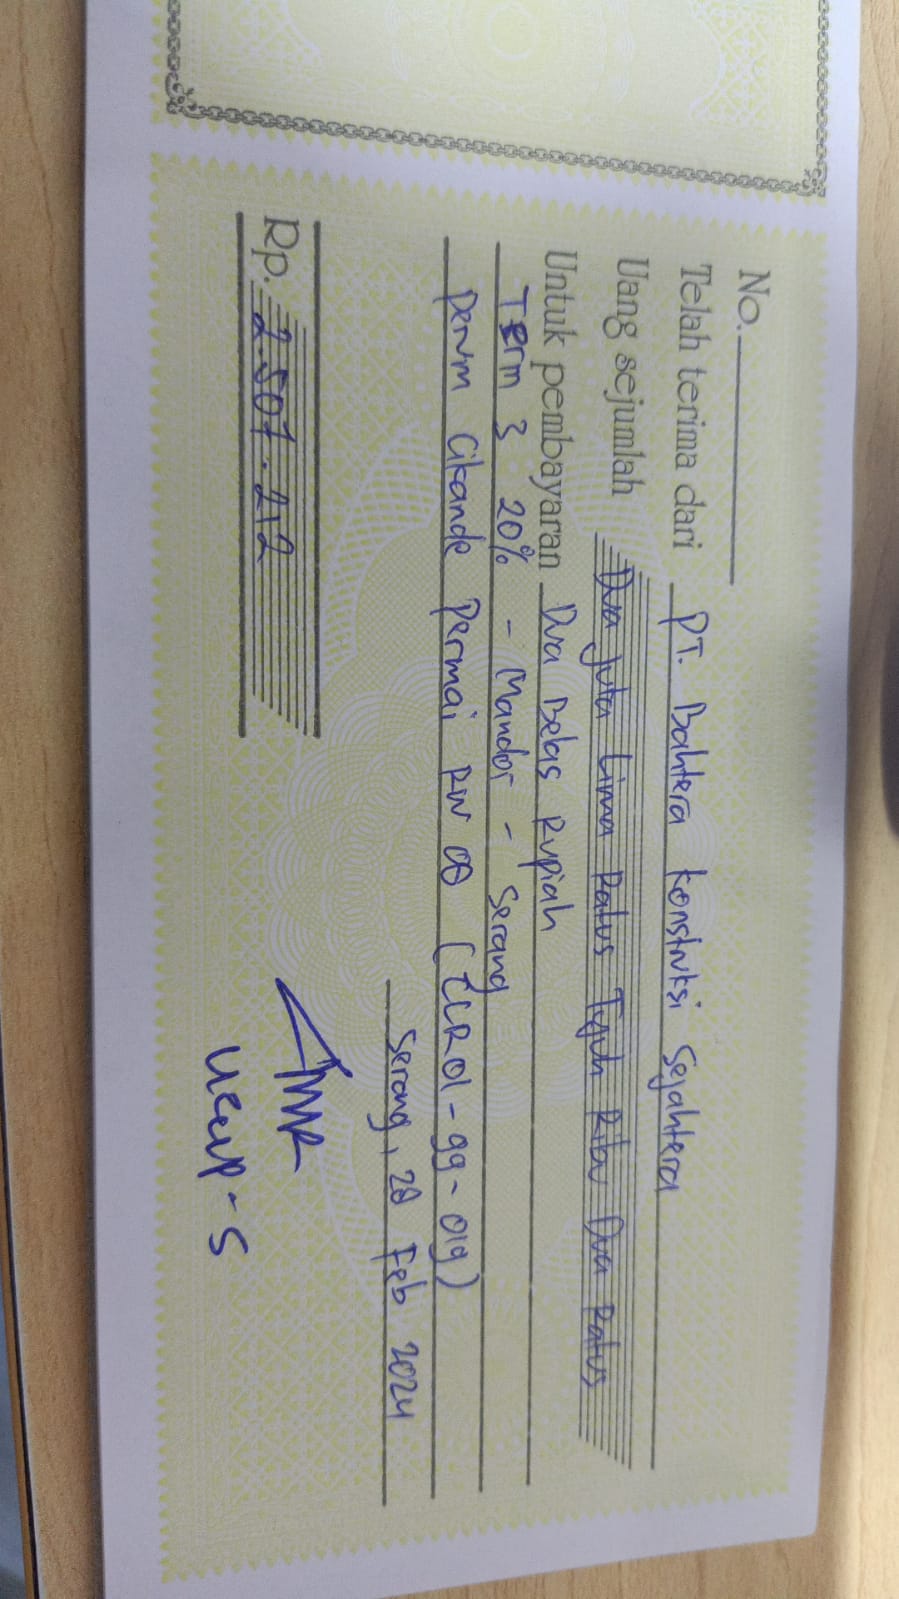 No.
Telah terima dari PT. Bahtera Konstruksi Sejahtera
Uang sejumlah Dua Juta Lima Ratus Tujuh Ribu Dua Ratus
Untuk pembayaran Dua Belas Rupiah
Term 3 20% - Mandor - Serang
Perum Cikande Permai RW 08 (CLR01-99-019)
Serang, 28 Feb 2024
Rp. 2.507.212
Ucup-S